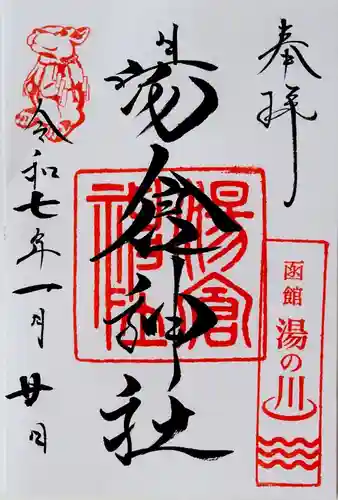 奉拝
函館
湯の川
湯倉神社
湯倉神社
令和七年一月廿日